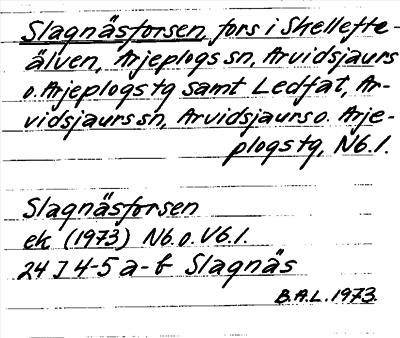 Slagnäsforsen, fors i Skellefte-
älven, Arjeplogs sn, Arvidsjaurs
o. Arjeplogs tg samt Ledfat, Ar-
vidsjaurs sn, Arvidsjaurs o. Arje-
plogs tg, Nb.l.
Slagnäsforsen
ek (1973) Nb.o.Vb.l.
24 I 4-5 a-b Slagnäs
B.A.L. 1973.